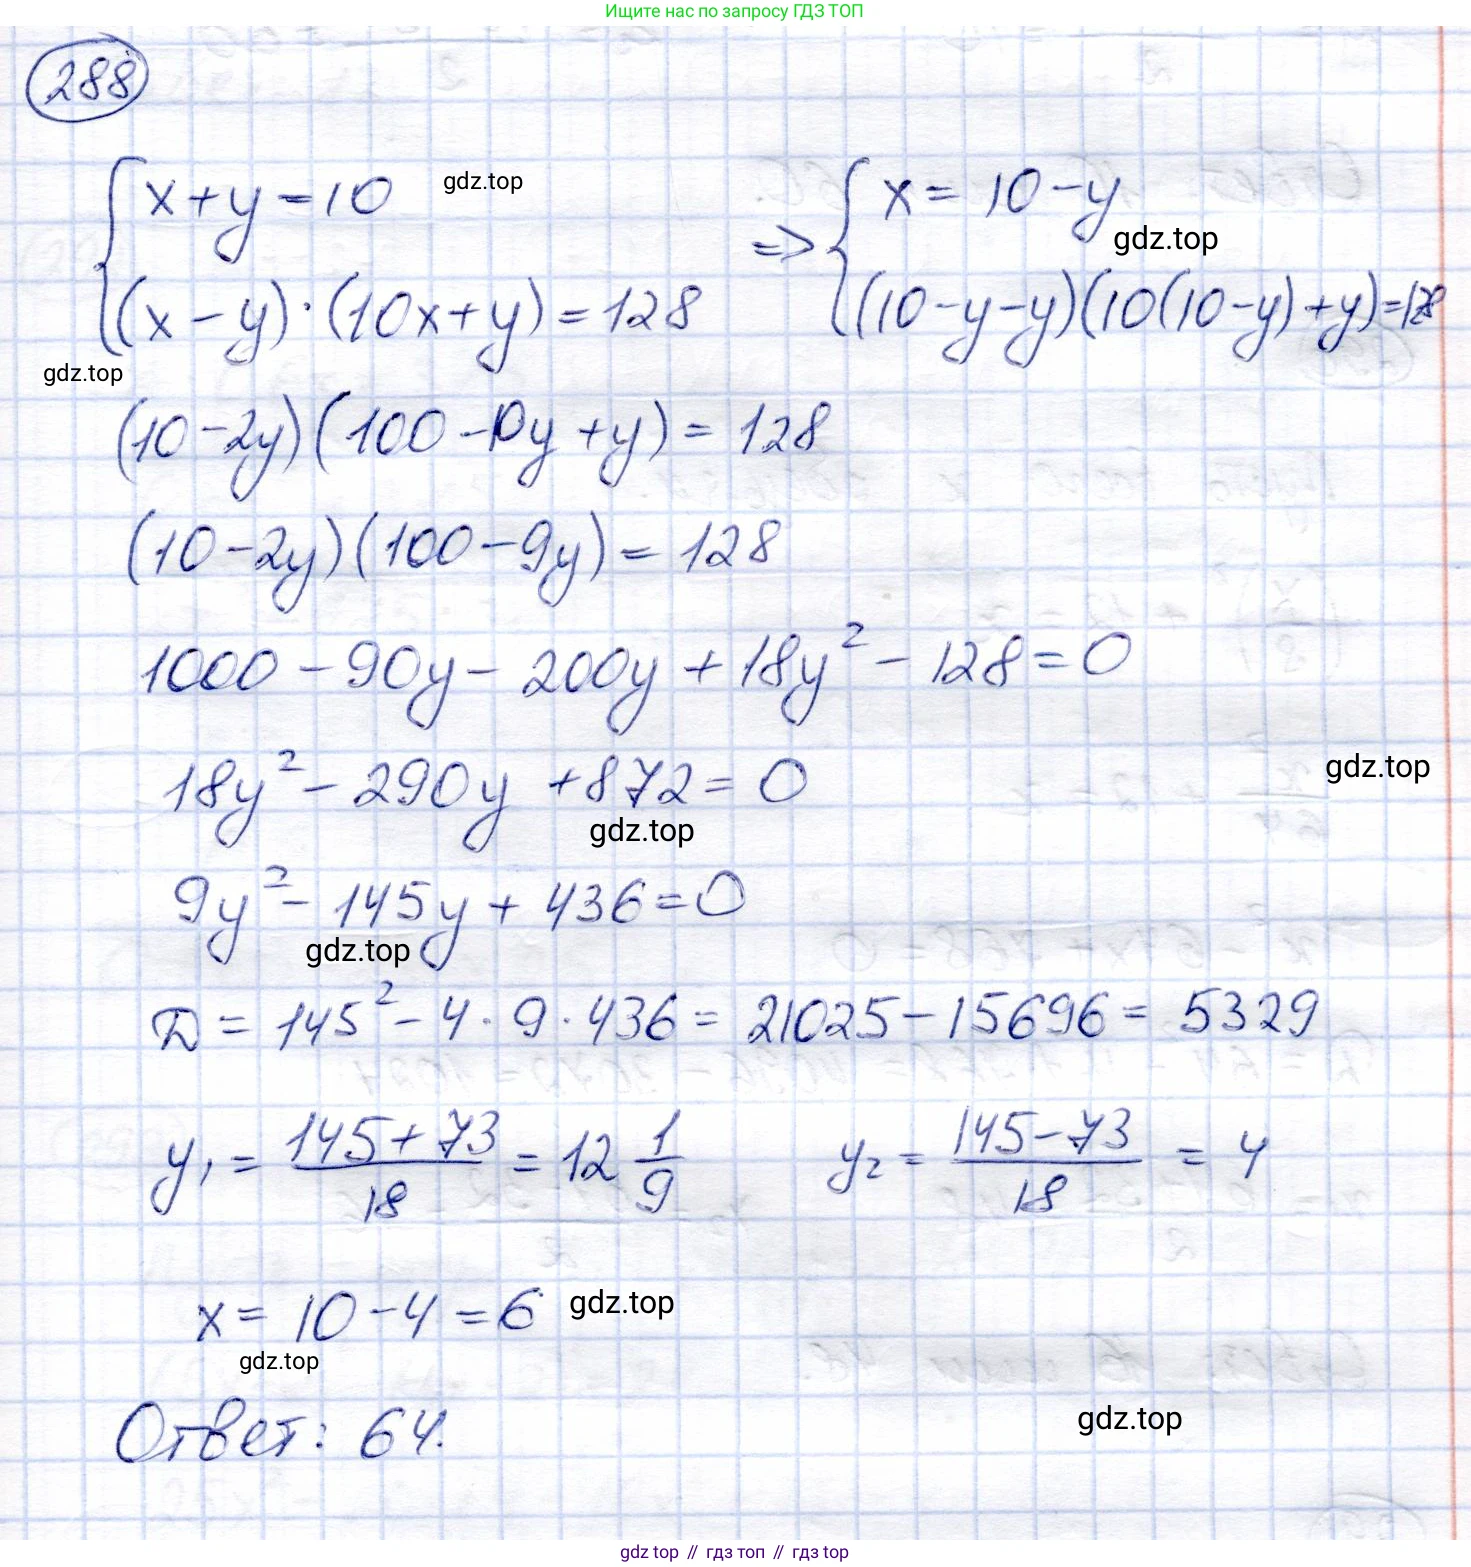 Ищите нас по запросу ГДЗ ТОП
288
{ x + y = 10 gdz.top => { x = 10 - y
gdz.top
(x - y) · (10x + y) = 128 (10 - y - y)(10(10 - y) + y) = 128
gdz.top
(10 - 2y)(100 - 10y + y) = 128
(10 - 2y)(100 - 9y) = 128
1000 - 90y - 200y + 18y² - 128 = 0
gdz.top
18y² - 290y + 872 = 0
gdz.top
9y² - 145y + 436 = 0
gdz.top
D = 145² - 4 · 9 · 436 = 21025 - 15696 = 5329
y₁ = (145 + 73)/18 = 12 1/9 y₂ = (145 - 73)/18 = 4
x = 10 - 4 = 6 gdz.top
gdz.top
Ответ: 64.
gdz.top
gdz top // гдз топ // гдз top